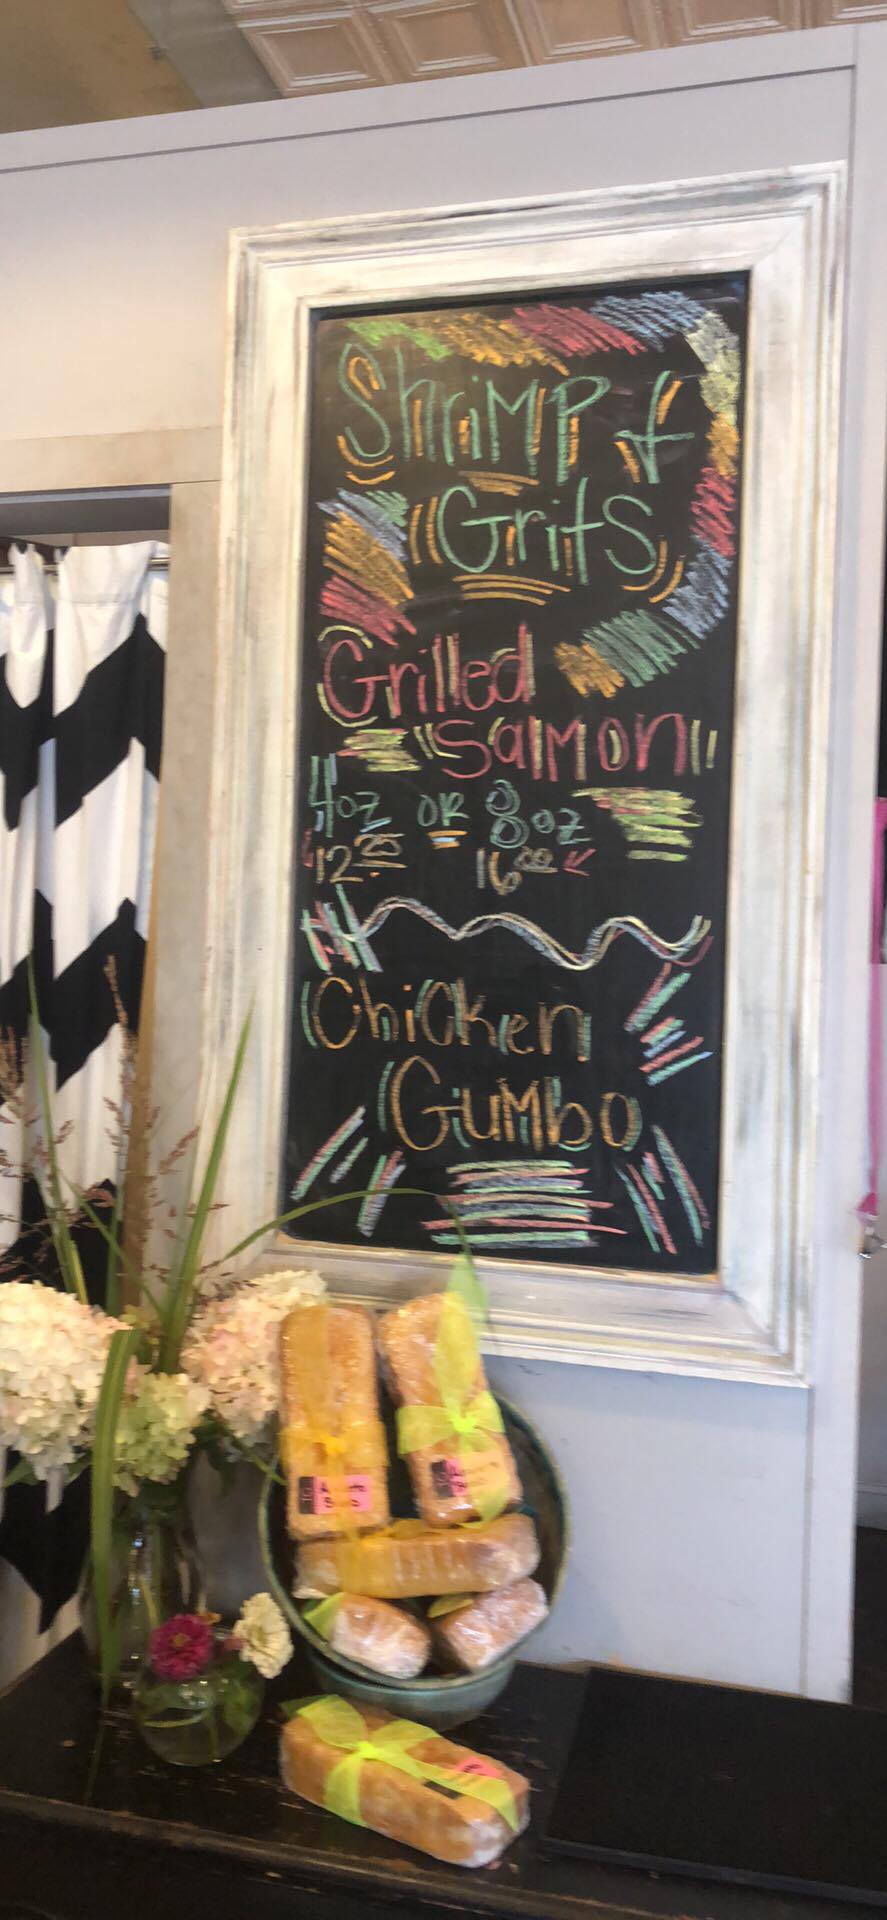 Shrimp &
Grits
Grilled
Salmon
4oz OR 8oz
12.25 16.00
Chicken
Gumbo